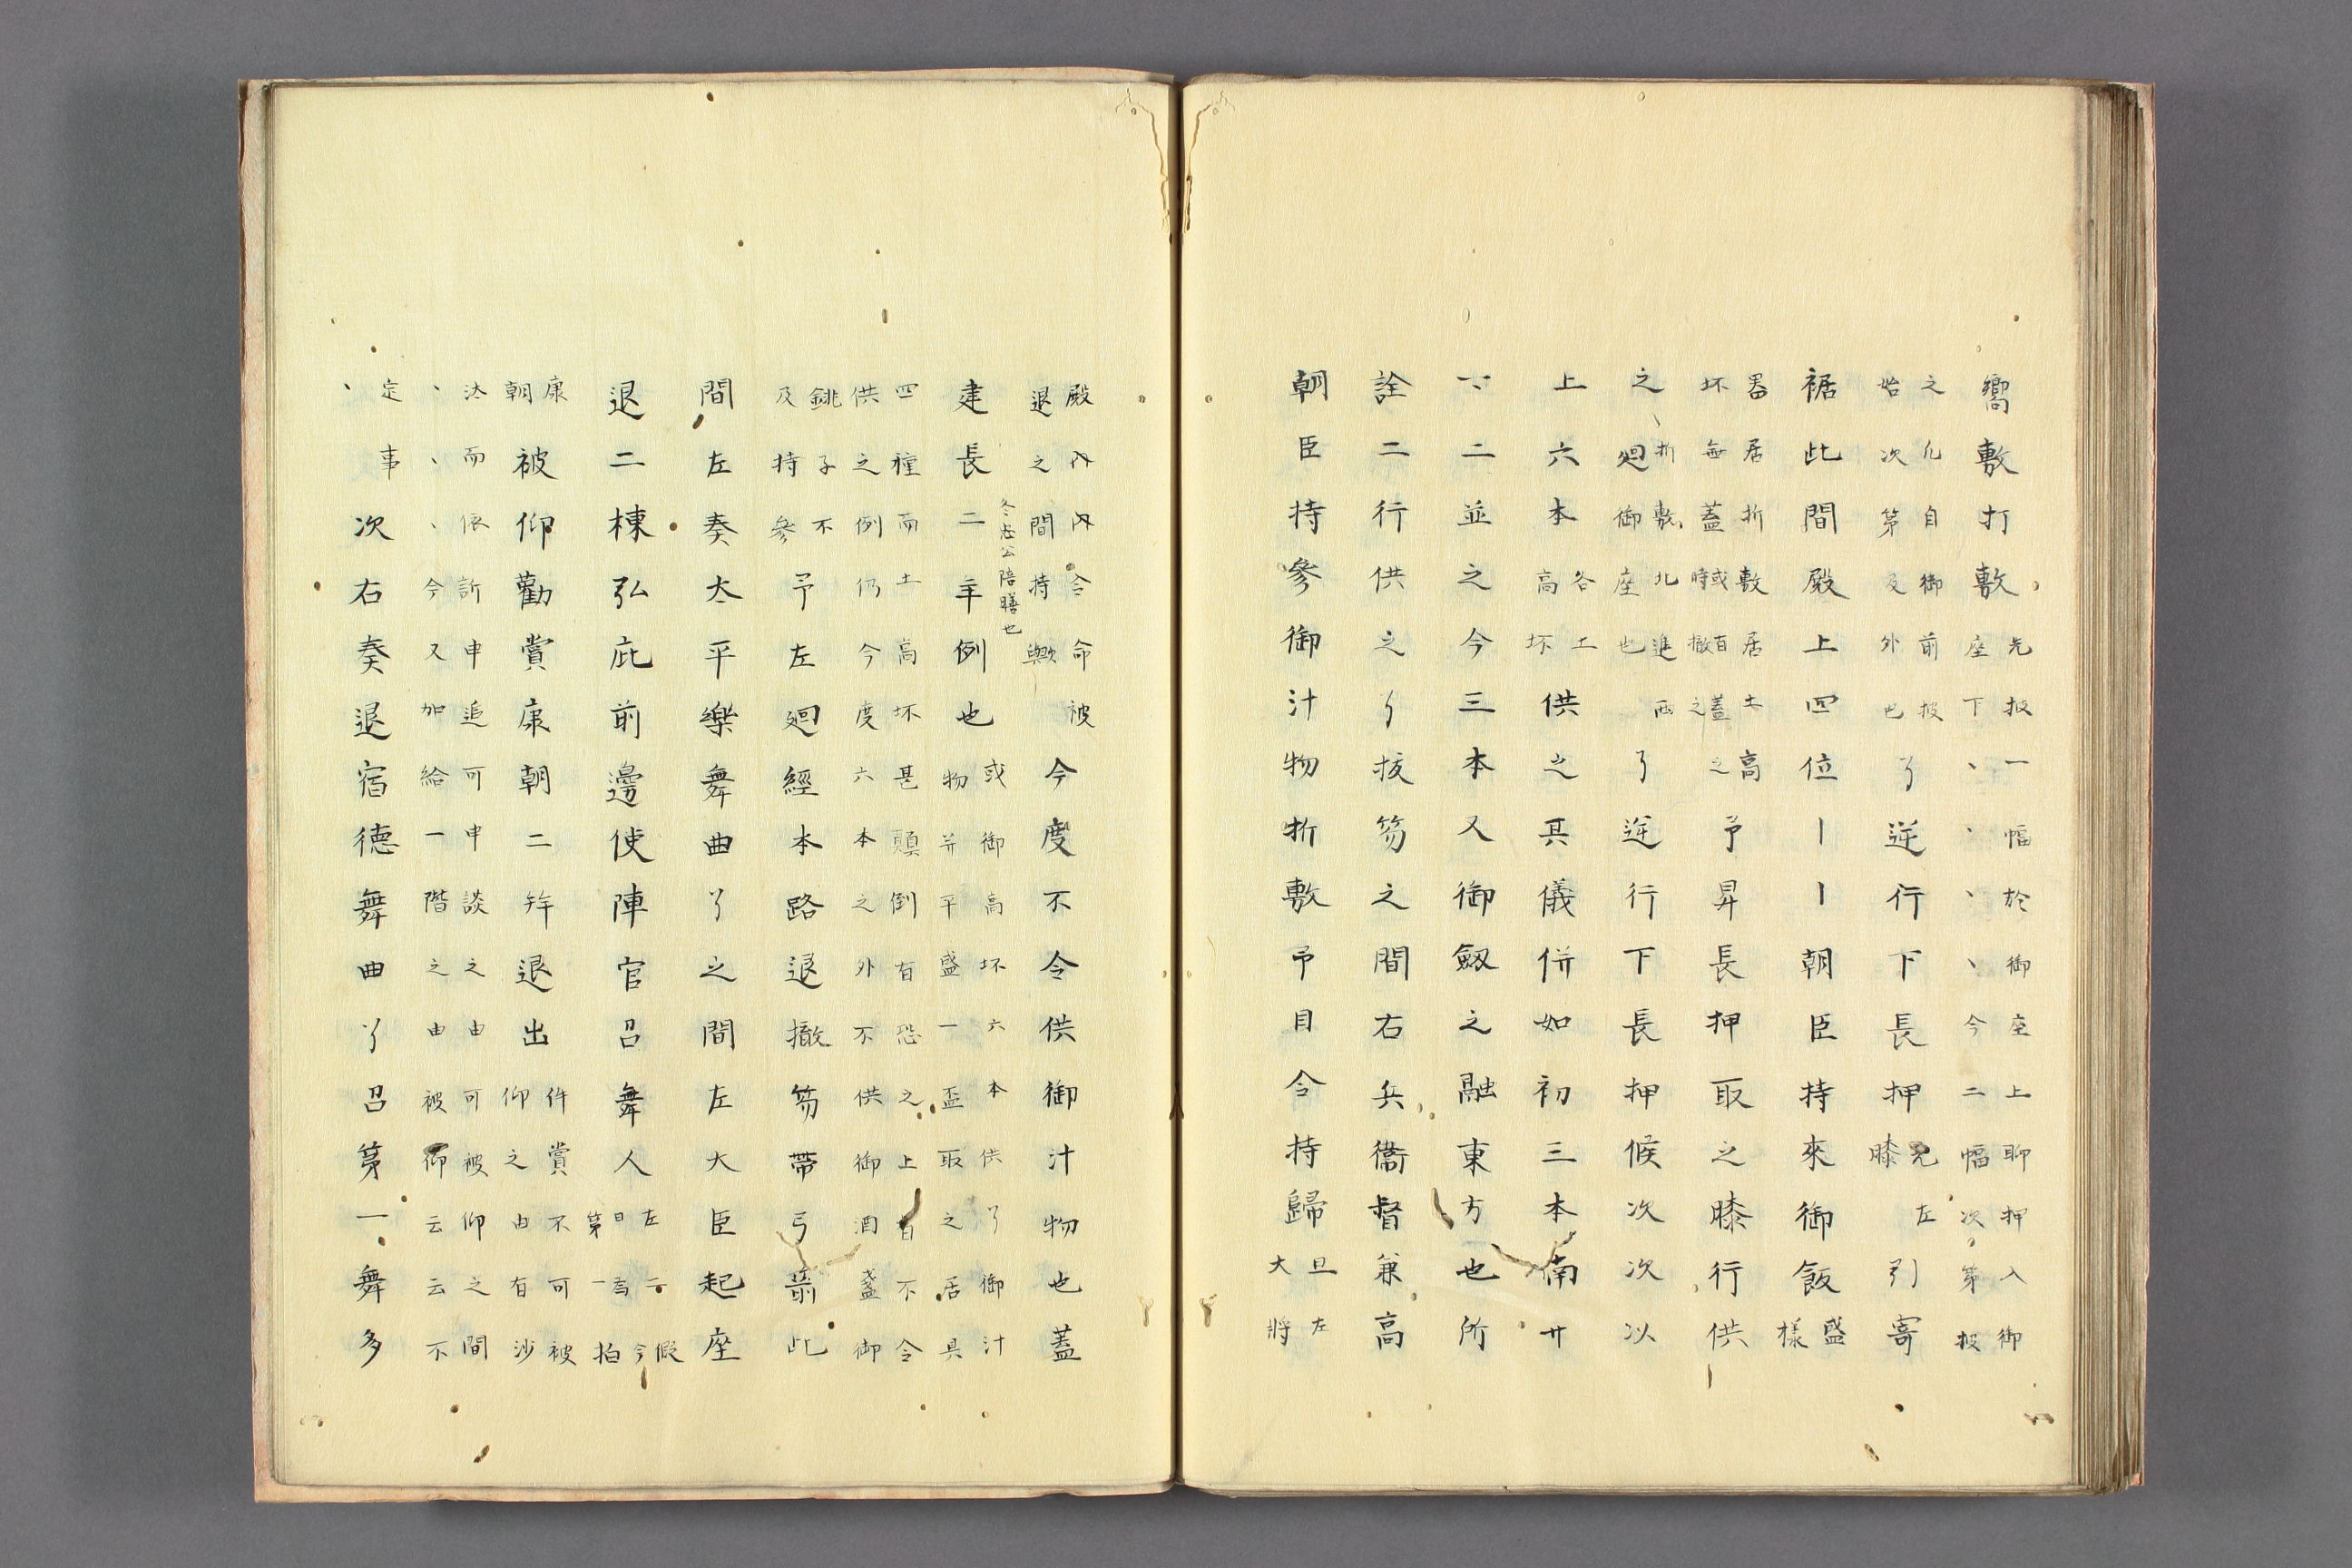 嚮敷打敷 先掖一幅於御座上聊押入御
座下、、、、今二幅次第掖
之 凡自御前掖
始次第及外也 了逆行下長押 先左
膝 引寄
裾此間殿上四位〡〡朝臣持來御飯 盛
樣
器居折敷居土高
坏每蓋或時百撤蓋之 予昇長押取之膝行供
之 折敷北進西
廻御座也 了逆行下長押候次次以
上六本 各土
高坏 供之其儀併如初三本南廾
一二並之今三本又御劔之融東方也所
詮二行供之了拔笏之間右兵衞督兼高
朝臣持參御汁物折敷予目令持歸 且左
大將
殿內內令命被
退之間持輿 今度不令供御汁物也蓋
建長二年例也 或御高坏六本供了御汁
物并平盛一盃取之居具
冬忠公陪膳也
四種而土高坏甚顛倒有恐之上自不令
供之例仍今度六本之外不供御酒盞御
銚子不
及持參 予左廻經本路退撤笏帶弓箭此
間左奏太平樂舞曲了之間左大臣起座
退二棟弘庇前邊使陣官召舞人 左
第一 拍
康
朝 被仰勸賞康朝二拜退出 件賞不可被
仰之由有沙
汰而依訴申追可申談之由可被仰之間
、、、今又加給一階之由被仰云云不
定事
、 次右奏退宿德舞曲了召第一舞多